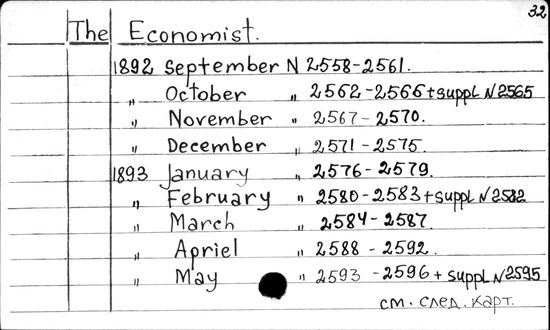 32
The Economist.
1892 September N 2558-2561.
„ October „ 2562-2566 + suppl. N 2565
„ November „ 2567-2570.
„ December „ 2571-2575.
1893 January „ 2576-2579.
„ February „ 2580-2583 + suppl. N 2582
„ March „ 2584-2587.
„ Apriel „ 2588-2592.
„ May „ 2593-2596 + suppl. N 2595
см. след. карт.